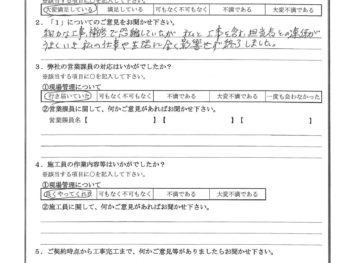 ※該当する項目に○を記入して下さい。
大変満足している 満足している 可も不可も不可 不満である 大変不満である
2．「1」についてのご意見をお聞かせ下さい。
3．弊社の営業課員の対応はいかがでしたか？
※該当する項目に○を記入して下さい。
①現場管理について
行き届いていた 可もなく不可もなく 不満である 大変不満である 一度も会わなかった
②営業課員に関して、何かご意見があればお聞かせ下さい。
営業課員名【 】【 】【 】
4．施工員の作業内容等はいかがでしたか？
※該当する項目に○を記入して下さい。
①現場管理について
良くやってくれた 可もなく不可もなく 不満である 大変不満である
②施工員に関して、何かご意見があればお聞かせ下さい。
5．ご契約時点から工事完工まで、何かご意見等がありましたらお聞かせ下さい。